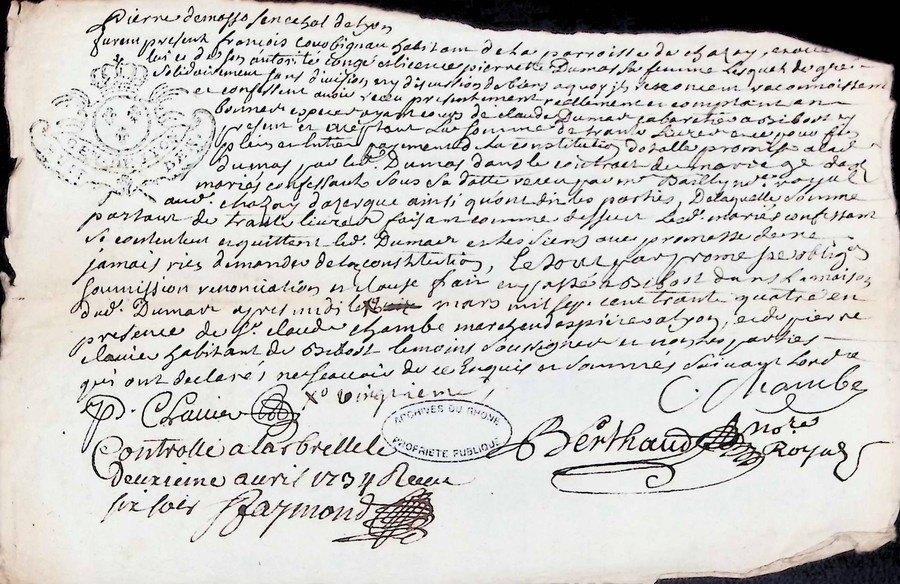 Pierre demasso senechal de lyon
furent present françois Coubignau habitant de la parroisse de chazay, et avec
luy et de son autorité congé et licence pierrette Dumas sa femme Lesquels de gré
solidairement sans division ny discussion de biens a quoy ils renoncent reconnoissent
et confessent avoir receu presentement reellement et comptant en
bonnes especes ayant cours de claude Dumas cabaretier a Bibost y
present et acceptant La somme de trante Livres et ce pour fin
plein et entier payement de La constitution dotalle promise a lad
Dumas par led. Dumas dans le contract de mariage des
mariés confessants sous sa datte receu par me Bailly nre royal
aud. chazay dazergue ainsi quont dit les parties, De laquelle somme
partant de trante livres faisant comme dessus Lesd. mariés confessant
se contentent et quittent led. Dumas et les siens avec promesse de ne
jamais rien demander de la constitution, Le tout par prome se oblign
soumission renonciation et clause fait et passé a Bibost dans la maison
dud. Dumas apres midi le mars mil sept cent trante quatre en
presence de sr. claude chambe marchend espicier a lyon, et de pierre
clavier habitant de Bibost temoins soussignes et non les parties
qui ont declaré ne scavoir de ce Enquis et sommés suivant lord.e
P. Clavier Xo vingtieme Chambe
ARCHIVES DU RHONE
PROPRIETE PUBLIQUE
Berthaud nore Royal
Controlle a Larbrelle le
Deuxieme avril 1734 Receu
six sols Raymond